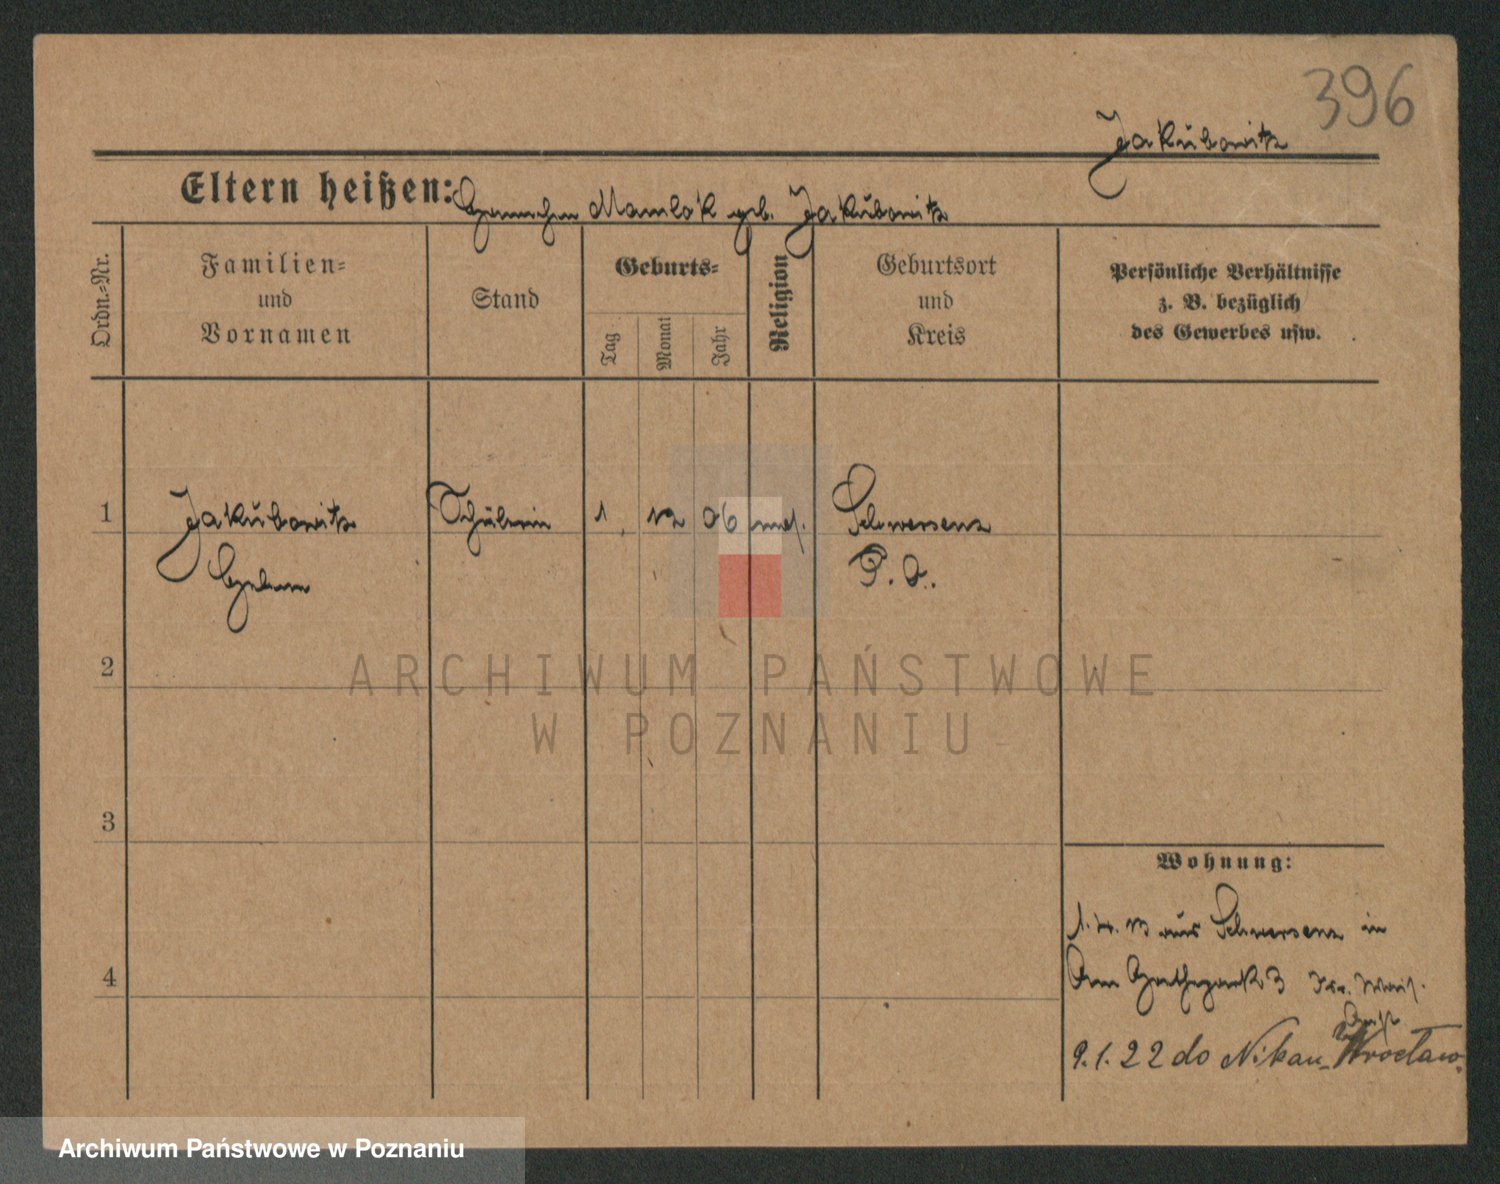 396
Jakubowitz
Eltern heißen: Mamlok geb. Jakubowitz
Ordn.-Nr.
Familien-
und
Vornamen
Stand
Geburts-
Tag
Monat
Jahr
Religion
Geburtsort
und
Kreis
Persönliche Verhältnisse
z. B. bezüglich
des Gewerbes usw.
1 Jakubowitz Schülerin 1. 12 06 mos. Schwersenz
P. O.
2
ARCHIWUM PAŃSTWOWE
W POZNANIU
3
Wohnung:
aus Schwersenz in
4
Am 3 Isr. Wais.
9.1.22 do Wrocław.
Archiwum Państwowe w Poznaniu